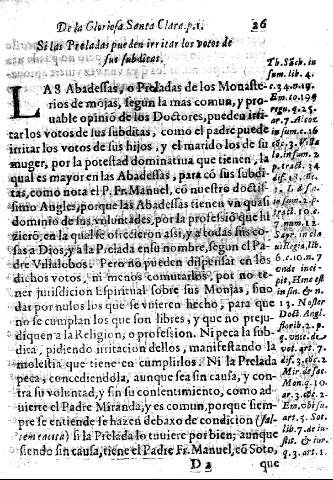 De la Gloriosa Santa Clara. p. 1. 26
Si las Preladas pueden irritar los votos de
sus subditas.
LAS Abadessas, o Preladas de los Monaste-
rios de mõjas, segun la mas comun, y pro-
uable opiniõ de los Doctores, pueden irri-
tar los votos de sus subditas, como el padre puede
irritar los votos de sus hijos, y el marido los de su
muger, por la potestad dominatiua que tienen, la
qual es mayor en las Abadessas, para cõ sus subdi-
tas, como nota el P. Fr. Manuel, cõ nuestro doctis-
simo Angles, porque las Abadessas tienen vn quasi
dominio de sus voluntades, por la professiõ que hi
zierõ, en la qual se ofrecierõ assi, y a todas sus co-
sas a Dios, y a la Prelada en su nombre, segun el Pa-
dre Villalobos. Pero no pueden dispensar en los
dichos votos, ni menos comutarlos, por no te-
ner jurisdicion Espiritual sobre sus Monjas, sino
dar por nulos los que se vuieren hecho, para que
no se cumplan los que son libres, y que no preju-
diquen a la Religion, o profession. Ni peca la sub-
dita, pidiendo irritacion dellos, manifestando la
molestia que tiene en cumplirlos. Ni la Prelada
peca, concediendola, aunque sea sin causa, y con-
tra su voluntad, y sin su consentimiento, como ad-
uierte el Padre Miranda, y es comun, porque siem-
pre se entiende se hazen debaxo de condicion (sal-
tem tacita) si la Prelada lo tuuiere por bien; aunque
siendo sin causa, tiene el Padre Fr. Manuel, cõ Soto,
D 2 que
Th. Sãch. in
sum. lib. 4.
c. 34. n. 19.
Em. to. 1. qq
regu. q. 25.
ar. 7. Azor.
in sum.
lo. in sum.
to. 2. tract.
in
Regia, lib.
6. c. 10. n. 7
ende inci-
pit, Etme est
in fin. q.
13. Noster
Doct. Angl.
florib. 2. p.
q. vnic. de
vot. art. 7.
dif. 3. &c. 2
Mir. de sac.
Mon. q. 10.
ar. 2. &c. 2.
Em. obi su.
art. 5. Sot.
lib. 7. de iu-
stit. & iur.
q. 3. art. 1.